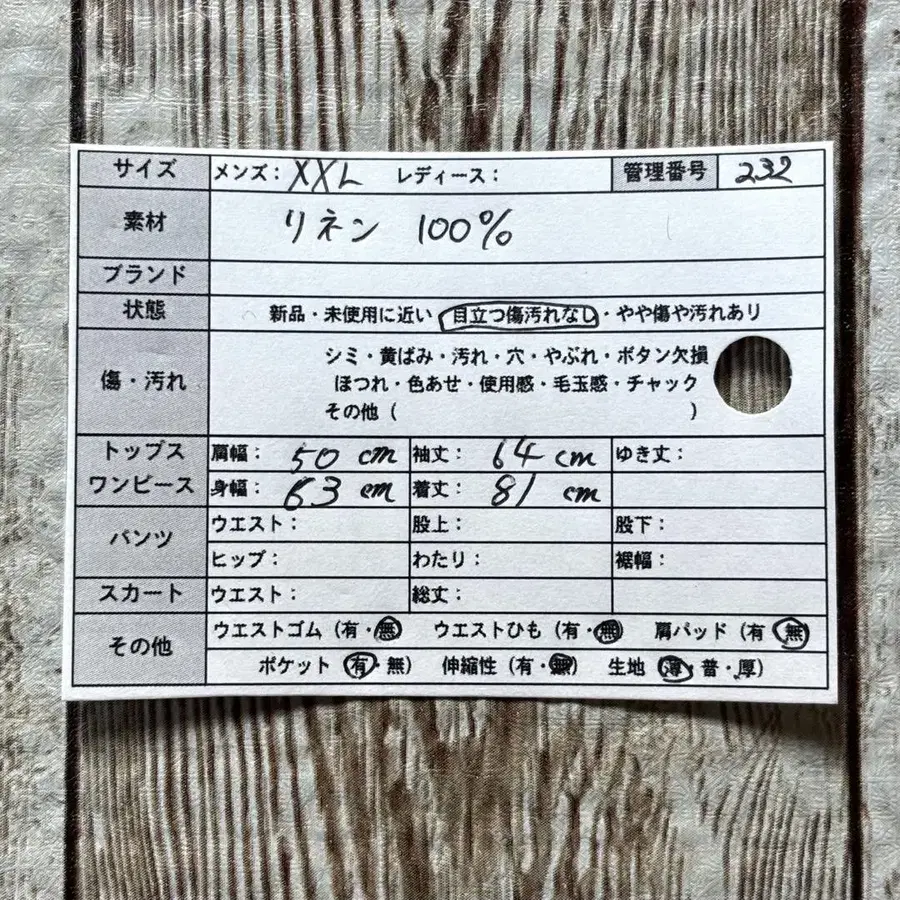 サイズ メンズ: XXL レディース: 管理番号 232
素材 リネン 100%
ブランド
状態 新品・未使用に近い 目立つ傷汚れなし・やや傷や汚れあり
傷・汚れ シミ・黄ばみ・汚れ・穴・やぶれ・ボタン欠損
ほつれ・色あせ・使用感・毛玉感・チャック
その他 ( )
トップス 肩幅: 50 cm 袖丈: 64 cm ゆき丈:
ワンピース 身幅: 63 cm 着丈: 81 cm
パンツ ウエスト: 股上: 股下:
ヒップ: わたり: 裾幅:
スカート ウエスト: 総丈:
その他 ウエストゴム (有・無) ウエストひも (有・無) 肩パッド (有 無)
ポケット (有・無) 伸縮性 (有・無) 生地 (薄・普・厚)